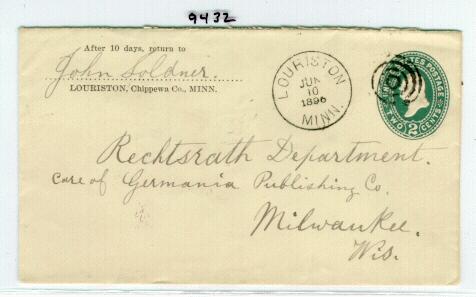 9432
After 10 days, return to
John Soldner.
LOURISTON, Chippewa Co., MINN.
LOURISTON
JUN
10
1896
MINN.
UNITED STATES POSTAGE
TWO 2 CENTS
Rechtsrath Department.
Care of Germania Publishing Co.
Milwaukee.
Wis.